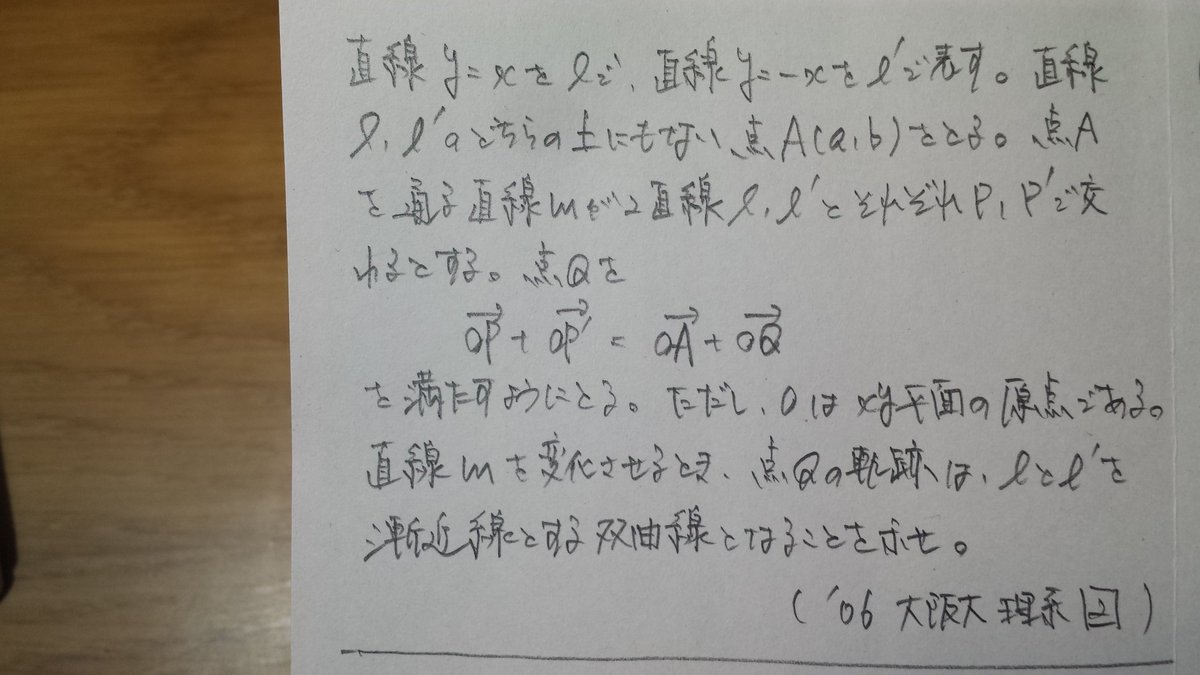 直線 y=x を l で、直線 y=-x を l' で表す。直線
l, l' のどちらの上にもない点 A(a,b) をとる。点 A
を通る直線 m が 2 直線 l, l' とそれぞれ P, P' で交
わるとする。点 Q を
OP→ + OP'→ = OA→ + OQ→
を満たすようにとる。ただし、O は xy 平面の原点である。
直線 m を変化させるとき、点 Q の軌跡は、l と l' を
漸近線とする双曲線となることを示せ。
('06 大阪大 理系 2)